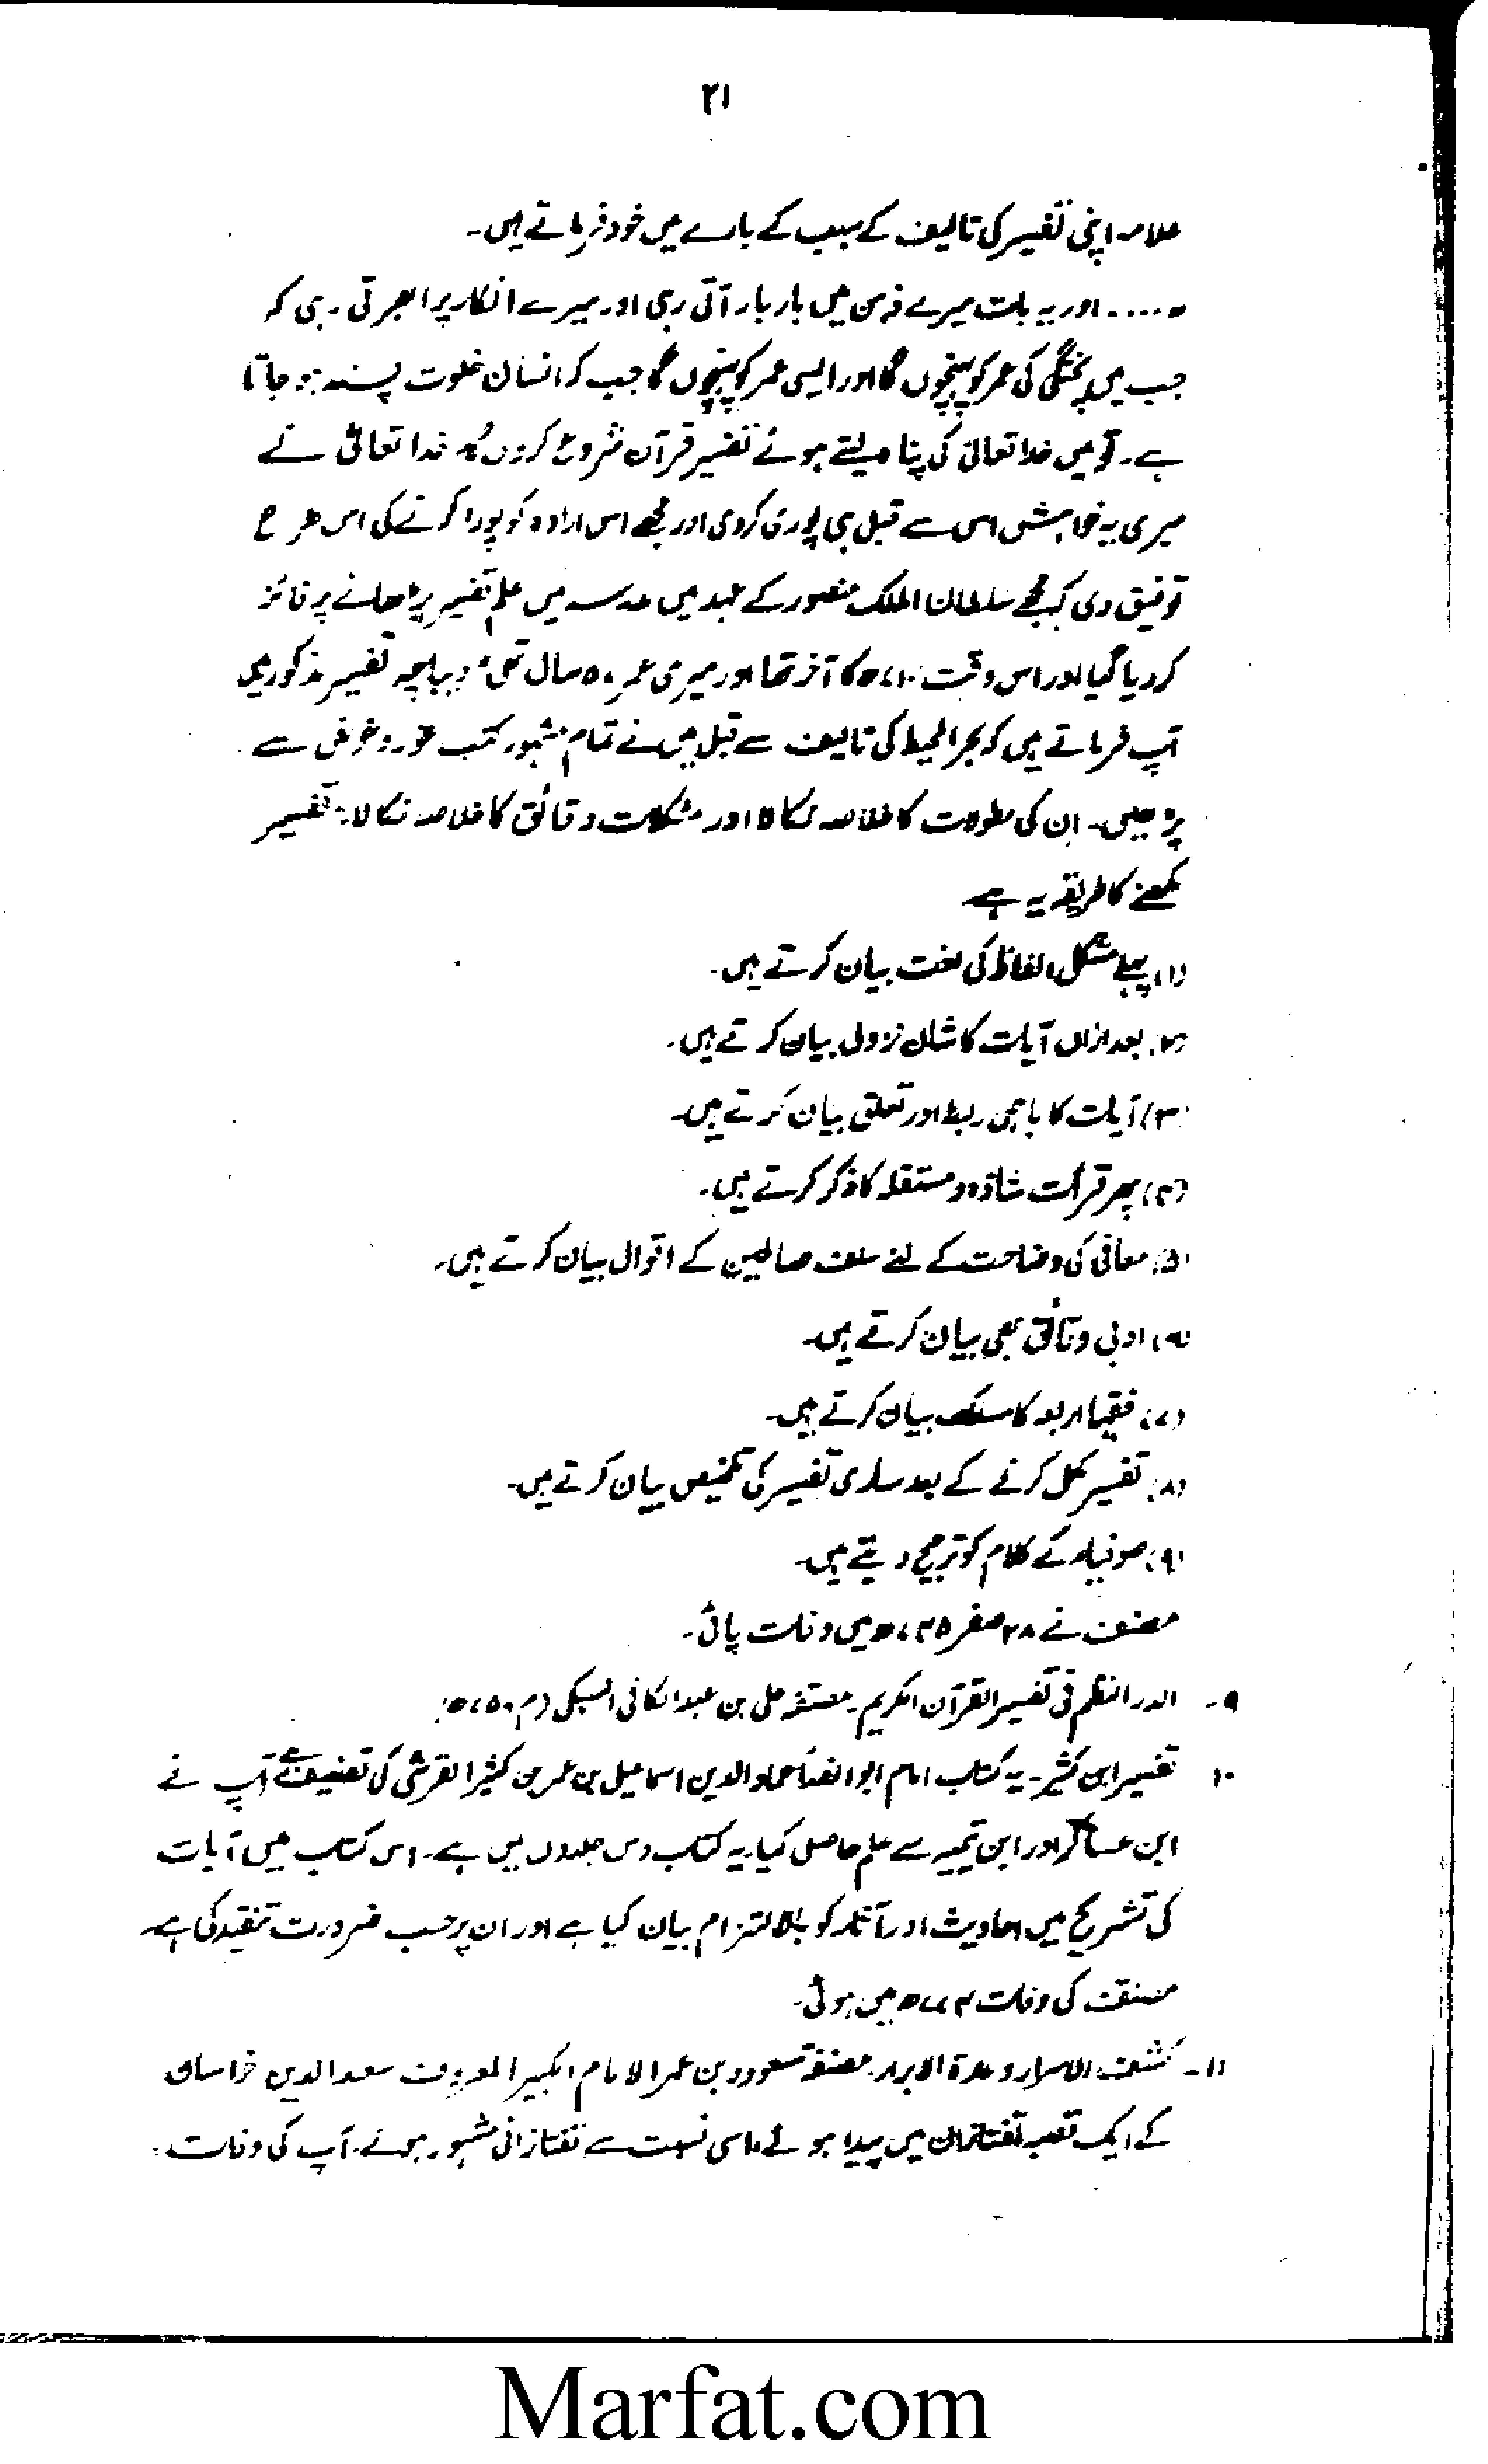 ۲۱
علامہ اپنی تفسیر کی تالیف کے سبب کے بارے میں خود فرماتے ہیں۔
"..... اور یہ بات میرے ذہن میں بار بار آتی رہی اور میرے انکار پر ابھرتی رہی کہ
جب میں پختگی کی عمر کو پہنچوں گا اور ایسی عمر کو پہنچوں گا جب کہ انسان خلوت پسند ہو جاتا
ہے۔ تو میں خدا تعالیٰ کی پناہ لیتے ہوئے تفسیر قرآن شروع کروں گا۔ خدا تعالیٰ نے
میری یہ خواہش اس سے قبل ہی پوری کر دی اور مجھے اس ارادہ کو پورا کرنے کی اس طرح
توفیق دی کہ مجھے سلطان الملک منصور کے عہد میں مدرسہ میں علم تفسیر پڑھانے پر فائز
کر دیا گیا اور اس وقت ۷۱۰ھ کا آخر تھا اور میری عمر ۵۰ سال تھی" دیباچہ تفسیر مذکور میں
آپ فرماتے ہیں کہ بحر المحیط کی تالیف سے قبل میں نے تمام مشہور کتب غور و خوض سے
پڑھیں۔ ان کی مطولات کا خلاصہ نکالا اور مشکلات دقائق کا خلاصہ نکالا۔ تفسیر
لکھنے کا طریقہ یہ ہے
(۱) پہلے مشکل الفاظ کی لغت بیان کرتے ہیں۔
(۲) بعد ازاں آیات کا شان نزول بیان کرتے ہیں۔
(۳) آیات کا باہمی ربط اور تعلق بیان کرتے ہیں۔
(۴) پھر قرأت شاذہ و مستقلہ کا ذکر کرتے ہیں۔
(۵) معانی کی وضاحت کے لئے سلف صالحین کے اقوال بیان کرتے ہیں۔
(۶) ادبی دقائق بھی بیان کرتے ہیں۔
(۷) فقہا اربعہ کا مسلک بیان کرتے ہیں۔
(۸) تفسیر مکمل کرنے کے بعد ساری تفسیر کی تلخیص بیان کرتے ہیں۔
(۹) صوفیاء کے کلام کو ترجیح دیتے ہیں۔
مصنف نے ۲۸ صفر ۷۴۵ھ میں وفات پائی۔
۹۔ الدر النظم فی تفسیر القرآن الکریم۔ مصنفہ علی بن عبد الکافی السبکی (م ۷۵۰ھ)
۱۰ تفسیر ابن کثیر۔ یہ کتاب امام ابو الفداء عماد الدین اسماعیل بن عمر بن کثیر القرشی کی تصنیف ہے آپ نے
ابن عساکر اور ابن تیمیہ سے علم حاصل کیا یہ کتاب دس جلدوں میں ہے۔ اس کتاب میں آیات
کی تشریح میں احادیث اور آثار کو بالالتزام بیان کیا ہے اور ان پر حسب ضرورت تنقید کی ہے۔
مصنف کی وفات ۷۷۴ھ میں ہوئی۔
۱۱۔ کشف الاسرار و عدۃ الابرار۔ مصنفہ مسعود بن عمر الامام الکبیر المعروف سعد الدین خراسان
کے ایک قصبہ تفتازان میں پیدا ہوئے اسی نسبت سے تفتازانی مشہور ہوئے۔ آپ کی وفات
Marfat.com